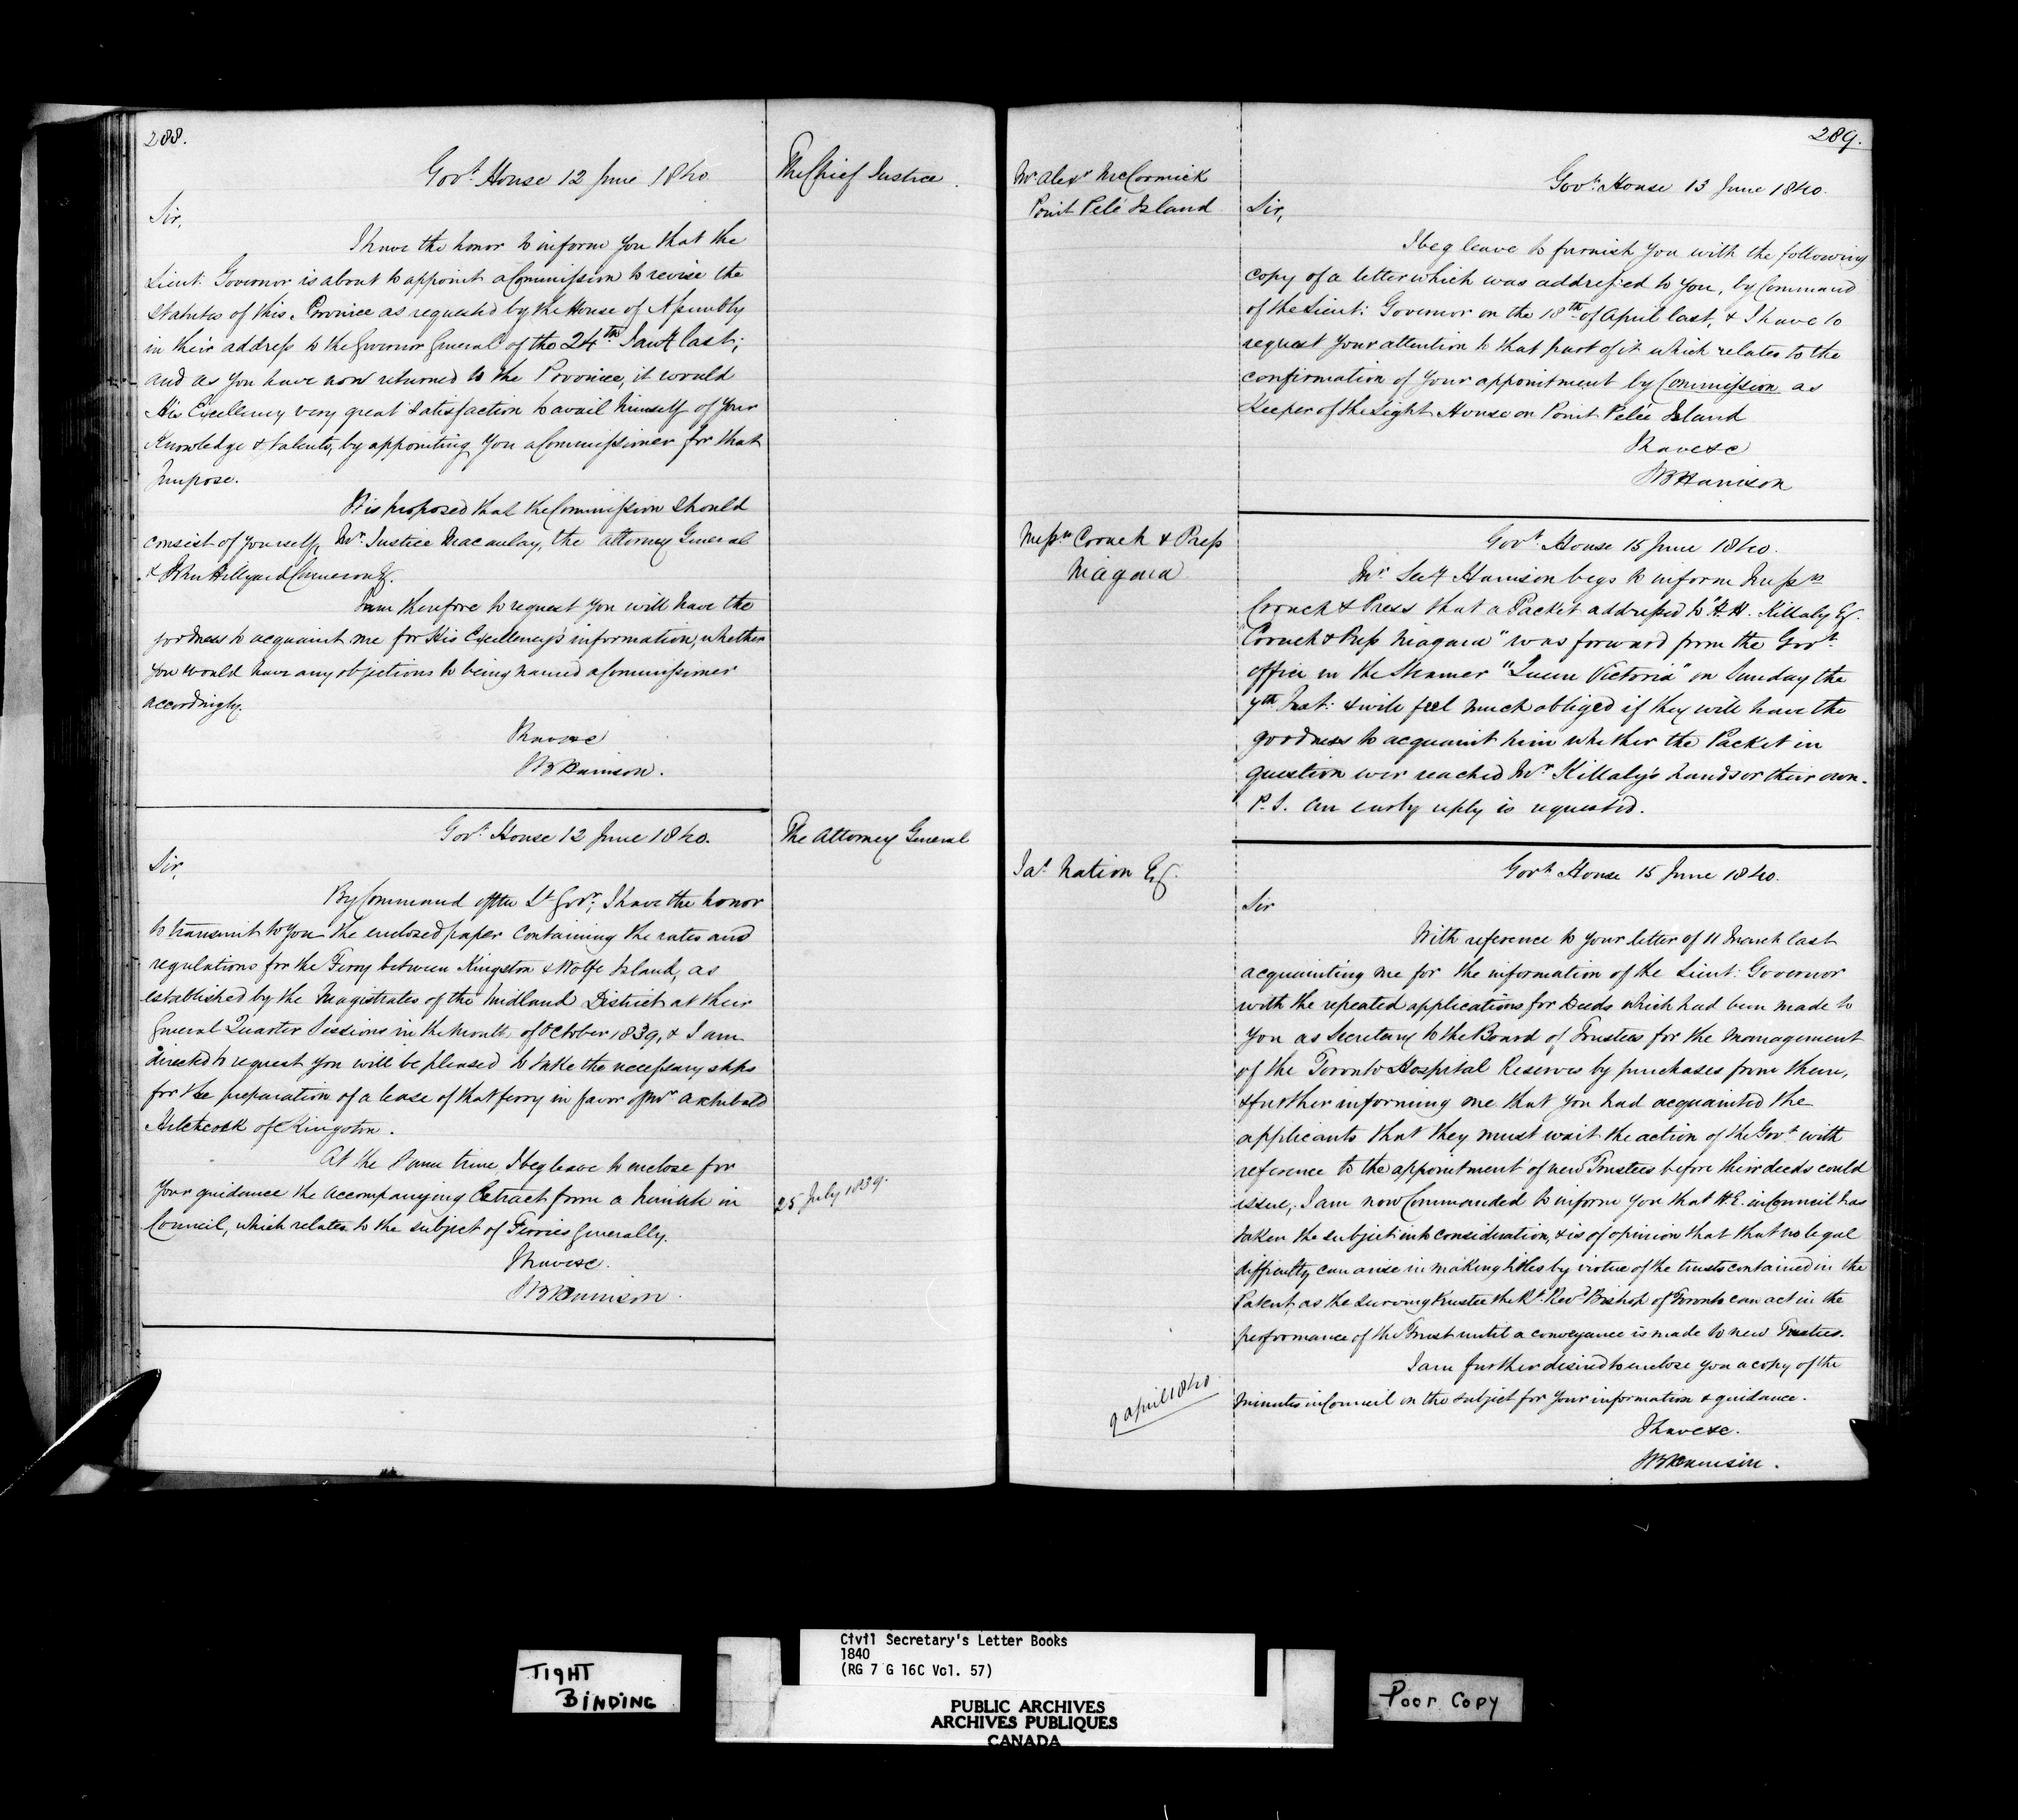 288.
Govt. House 12 June 1840.
The Chief Justice.
Sir,
I have the honor to inform you that the
Lieut: Governor is about to appoint a Commission to revise the
Statutes of this Province as requested by the House of Assembly
in their address to the Governor General of the 24th Jany last;
and as you have now returned to the Province, it would
His Excellency very great satisfaction to avail himself of your
Knowledge & talents, by appointing you a Commissioner for that
purpose.
It is proposed that the Commission should
consist of yourself, Mr. Justice Macaulay, the Attorney General
& John Hillyard Cameron Esq.
I am therefore to request you will have the
goodness to acquaint me for His Excellency's information, whether
you would have any objections to being named a Commissioner
accordingly.
I have &c
SB Harrison.
Govt. House 12 June 1840.
The Attorney General
Sir,
By Command of the Lt Govr; I have the honor
to transmit to you the enclosed paper containing the rates and
regulations for the Ferry between Kingston & Wolfe Island, as
established by the Magistrates of the Midland District at their
General Quarter Sessions in the month of October 1839, & I am
directed to request you will be pleased to take the necessary steps
for the preparation of a lease of that ferry in favor of Mr Archibald
Hitchcock of Kingston.
At the same time, I beg leave to enclose for
your guidance the accompanying Extract from a Minute in
25 July 1839.
Council, which relates to the subject of Ferries generally.
I have &c.
SB Harrison.
289.
Mr Alexr McCormick
Point Pelé Island
Govt. House 13 June 1840.
Sir,
I beg leave to furnish you with the following
copy of a letter which was addressed to you, by Command
of the Lieut: Governor on the 18th of April last, & I have to
request your attention to that part of it which relates to the
confirmation of your appointment by Commission as
Keeper of the Light House on Point Pelée Island
I have &c
SB Harrison
Messrs Crouch & Press
Niagara
Govt. House 15 June 1840.
Mr. Secy Harrison begs to inform Messrs
Crouch & Press that a Packet addressed to "H.H. Killaly Esq.
"Crouch & Press Niagara" was forward from the Govt.
office in the Steamer "Queen Victoria" on Sunday the
7th Inst: & will feel much obliged if they will have the
goodness to acquaint him whether the Packet in
question ever reached Mr. Killaly's hands or their own.
P.S. An early reply is requested.
Jas. Nation Esq.
Govt. House 15 June 1840.
Sir
With reference to your letter of 11 March last
acquainting me for the information of the Lieut: Governor
with the repeated applications for Deeds which had been made to
you as Secretary to the Board of Trustees for the management
of the Toronto Hospital Reserves by purchases from them,
& further informing me that you had acquainted the
applicants that they must wait the action of the Govt. with
reference to the appointment of new Trustees before their deeds could
issue, I am now Commanded to inform you that H.E. in Council has
taken the subject into consideration, & is of opinion that that no legal
difficulty can arise in making titles by virtue of the trusts contained in the
Patent, as the surviving trustee the Rt. Revd. Bishop of Toronto can act in the
performance of the Trust until a conveyance is made to new Trustees.
I am further desired to enclose you a copy of the
9 April 1840.
minutes in Council on the subject for your information & guidance.
I have &c.
SB Harrison.
TIGHT
BINDING
Civil Secretary's Letter Books
1840
(RG 7 G 16C Vol. 57)
PUBLIC ARCHIVES
ARCHIVES PUBLIQUES
CANADA
Poor Copy